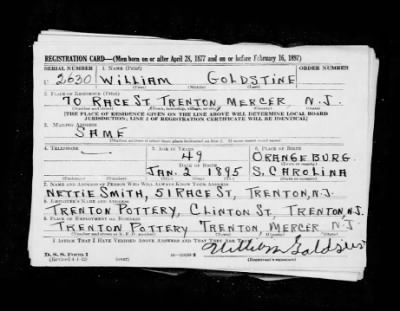 REGISTRATION CARD—(Men born on or after April 28, 1877 and on or before February 16, 1897)
SERIAL NUMBER 1. NAME (Print) ORDER NUMBER
U 2630 WILLIAM GOLDSTINE
(First) (Middle) (Last)
2. PLACE OF RESIDENCE (Print)
70 RACE ST TRENTON MERCER N.J.
[THE PLACE OF RESIDENCE GIVEN ON THE LINE ABOVE WILL DETERMINE LOCAL BOARD
JURISDICTION; LINE 2 OF REGISTRATION CERTIFICATE WILL BE IDENTICAL]
3. MAILING ADDRESS
SAME
4. TELEPHONE 5. AGE IN YEARS 6. PLACE OF BIRTH
49 ORANGEBURG
DATE OF BIRTH
JAN. 2 1895 S. CAROLINA
7. NAME AND ADDRESS OF PERSON WHO WILL ALWAYS KNOW YOUR ADDRESS
NETTIE SMITH, 51 RACE ST, TRENTON, N.J.
8. EMPLOYER'S NAME AND ADDRESS
TRENTON POTTERY, CLINTON ST, TRENTON, N.J.
9. PLACE OF EMPLOYMENT OR BUSINESS
TRENTON POTTERY TRENTON MERCER N.J.
I AFFIRM THAT I HAVE VERIFIED ABOVE ANSWERS AND THAT THEY ARE
D. S. S. Form 1
William